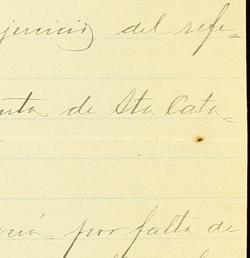 ejercicio del refe-
nta de Sta Cata-
por falta de